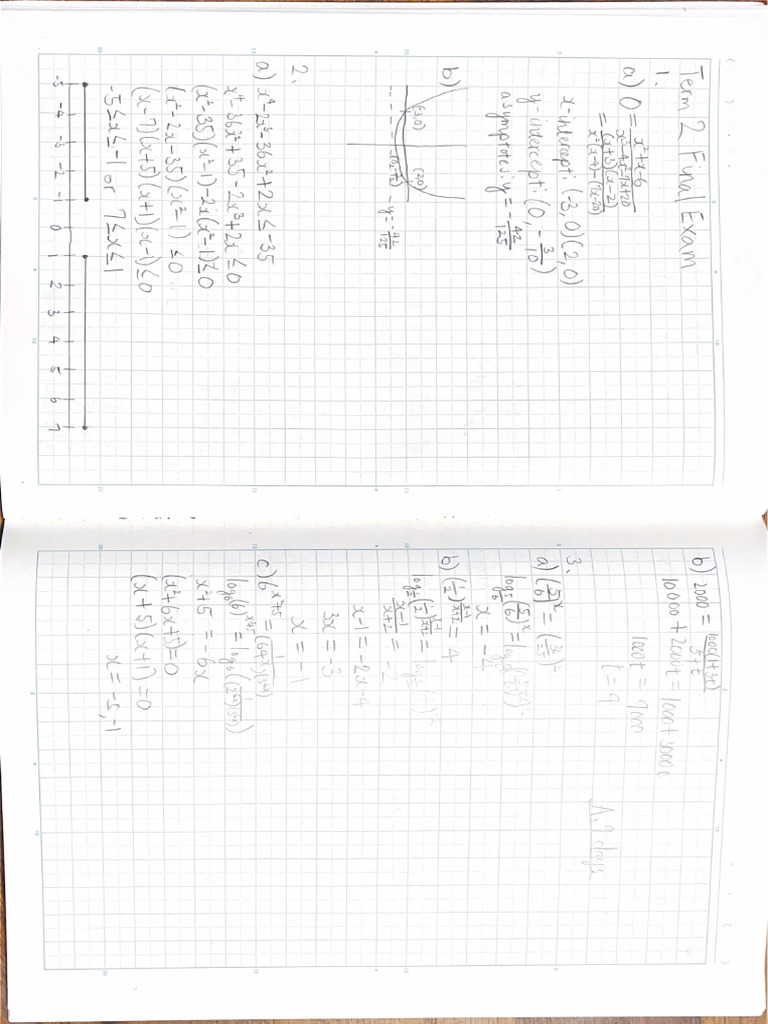 Term 2 Final Exam
1.
a) 0 = x²+x-6 / x³-4x²-7x+20
= (x+3)(x-2) / x²(x-4)-(7x-20)
x-intercept: (-3,0)(2,0)
y-intercept: (0, -3/10)
asymptotes: y = -42/125
b)
(-3,0)
(2,0)
y = -42/125
2.
a) x⁴-2x³-36x²+2x≤-35
x⁴-36x²+35-2x³+2x≤0
(x²-35)(x²-1)-2x(x²-1)≤0
(x²-2x-35)(x²-1)≤0
(x-7)(x+5)(x+1)(x-1)≤0
-5≤x≤-1 or 7≤x≤1
-5 -4 -3 -2 -1 0 1 2 3 4 5 6 7
b) 2000 = 1000(1+3t) / 5+t
10000+2000t = 1000+3000t
1000t = 9000
t = 9
A. 9 days
3.
x = -4
b) (1/2)^(x-1/x+2) = 4
x-1/x+2 = -2
x-1 = -2x-4
3x = -3
x = -1
x²+5 = -6x
(x²+6x+5)=0
(x+5)(x+1)=0
x = -5,-1